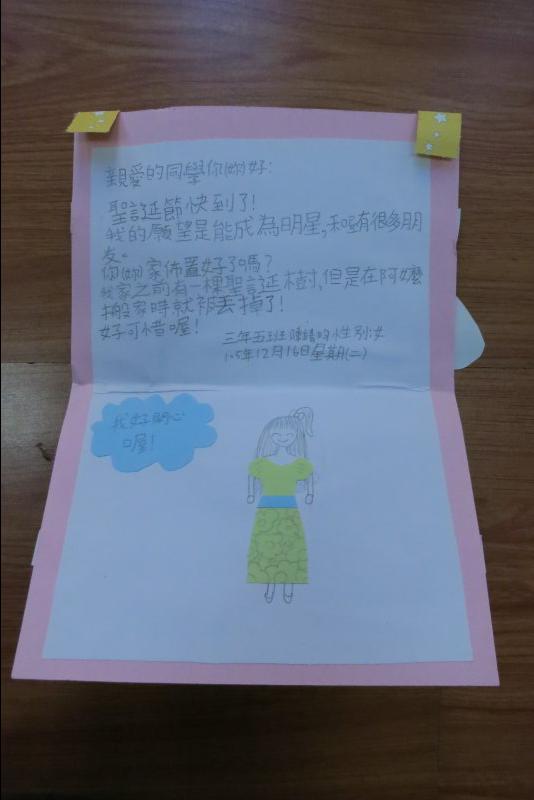 親愛的同學你(妳)好:
聖誕節快到了!
我的願望是能成為明星,和擁有很多朋
友。
你(妳)家佈置好了嗎?
我家之前有一棵聖誕樹,但是在阿嬤
搬家時就被丟掉了!
好可惜喔!
三年五班 陳 昀 性別:女
105年12月16日星期(二)
我好開心
喔!